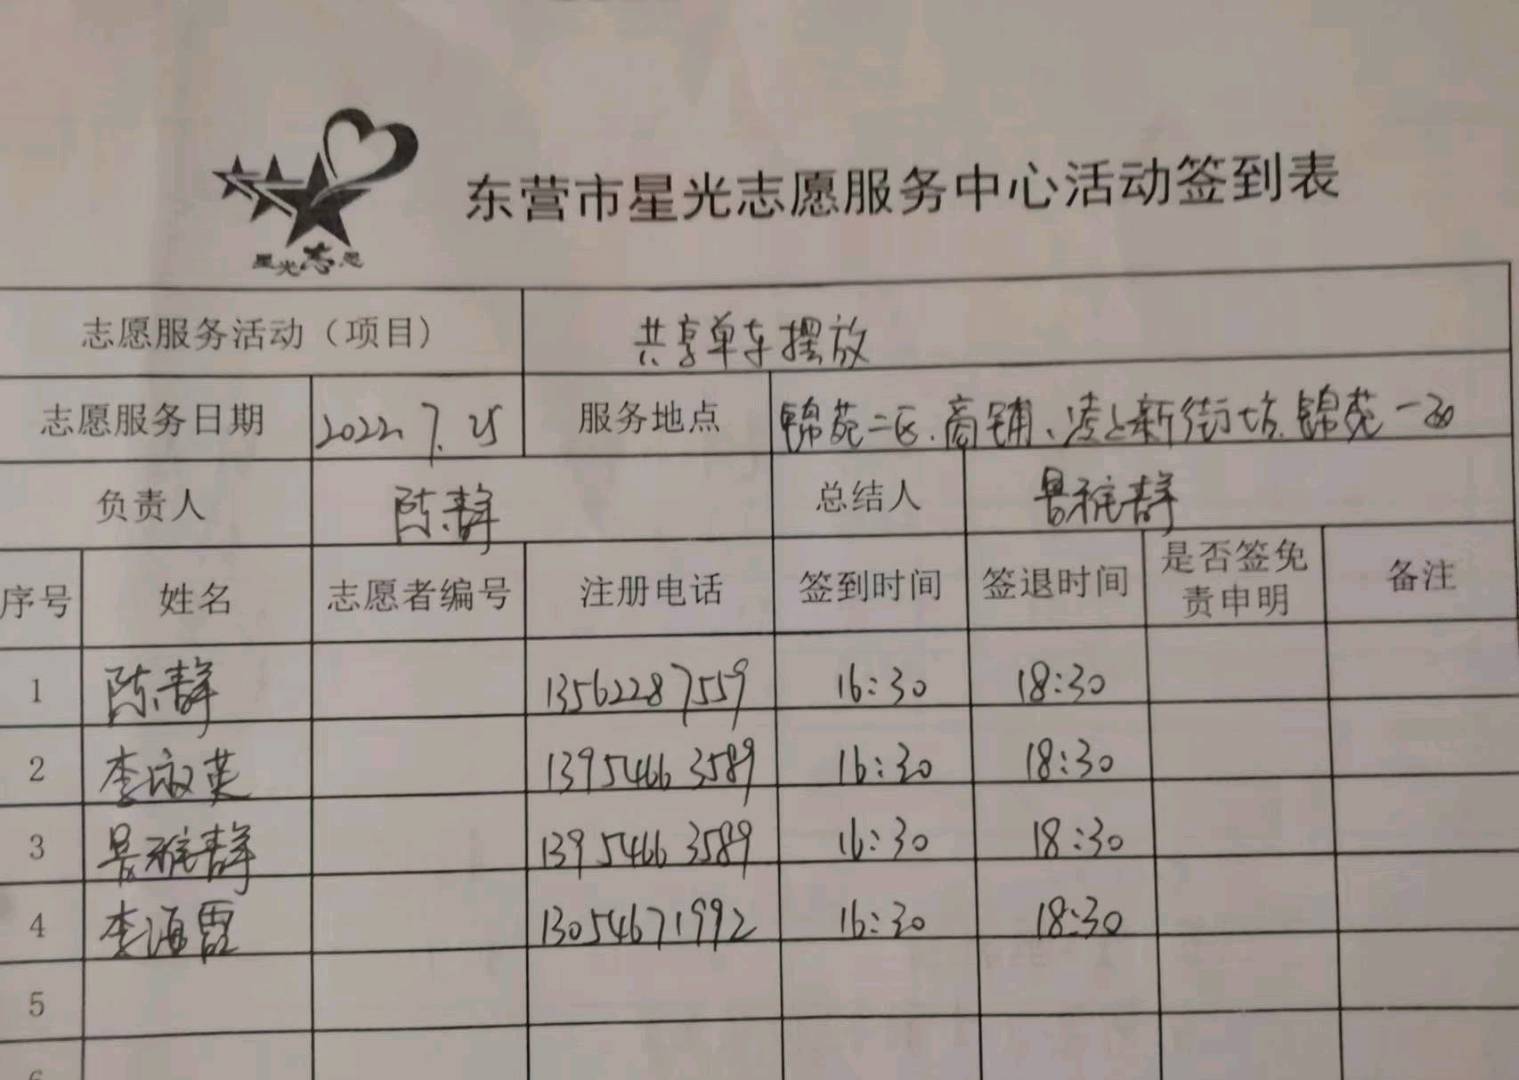 星光志愿
东营市星光志愿服务中心活动签到表
志愿服务活动（项目） 共享单车摆放
志愿服务日期 2022.7.25 服务地点 锦苑二区.商铺、凌上新街坊.锦苑一区
负责人 陈静 总结人 景雅静
序号 姓名 志愿者编号 注册电话 签到时间 签退时间 是否签免责申明 备注
1 陈静 13562287559 16:30 18:30
2 李敬英 13954663589 16:30 18:30
3 景雅静 13954663589 16:30 18:30
4 李海霞 13054671992 16:30 18:30
5